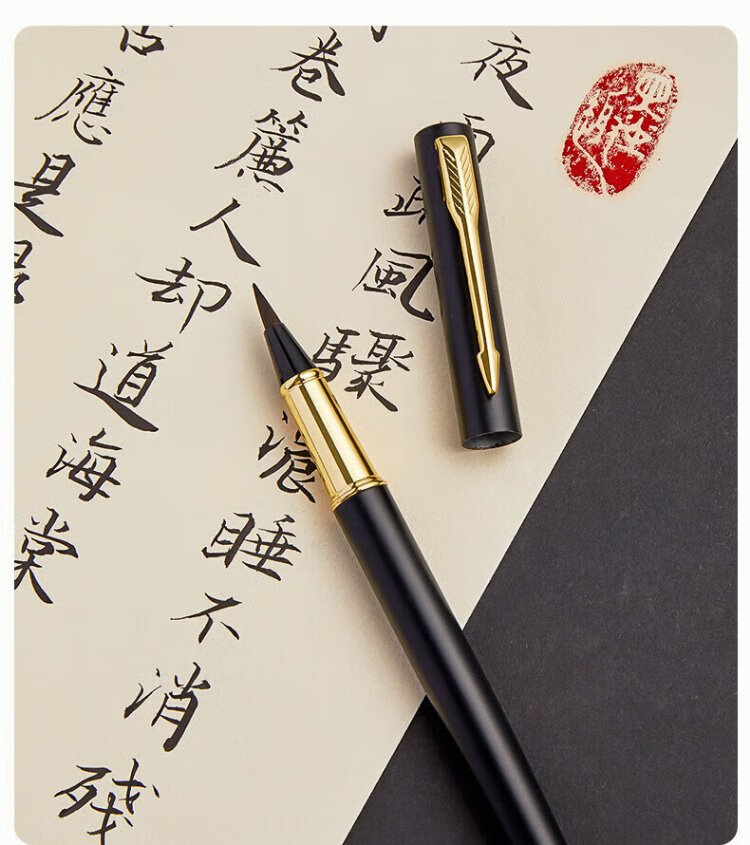 夜雨風驟睡不消殘
卷簾人却道海棠
應是